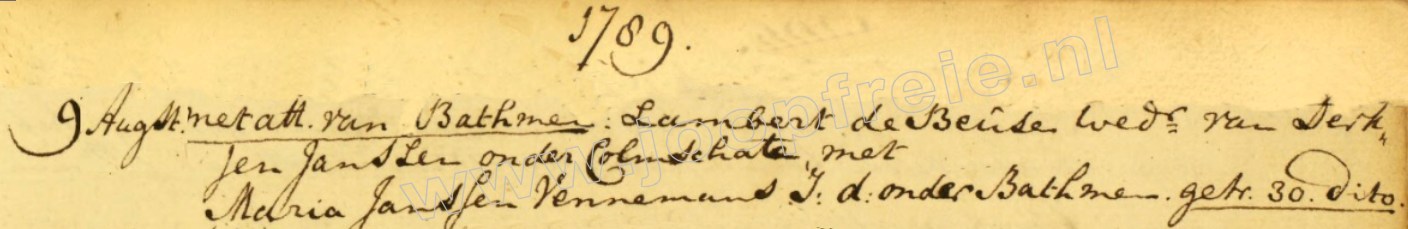 1789.
9 Augst: met att. van Bathmen: Lambert de Beúse Wedr. van Derk„
jen Janssen onder Colmschate, met
Maria Janssen Vennemans J: d: onder Bathmen. getr. 30. dito.
www.joopfreie.nl